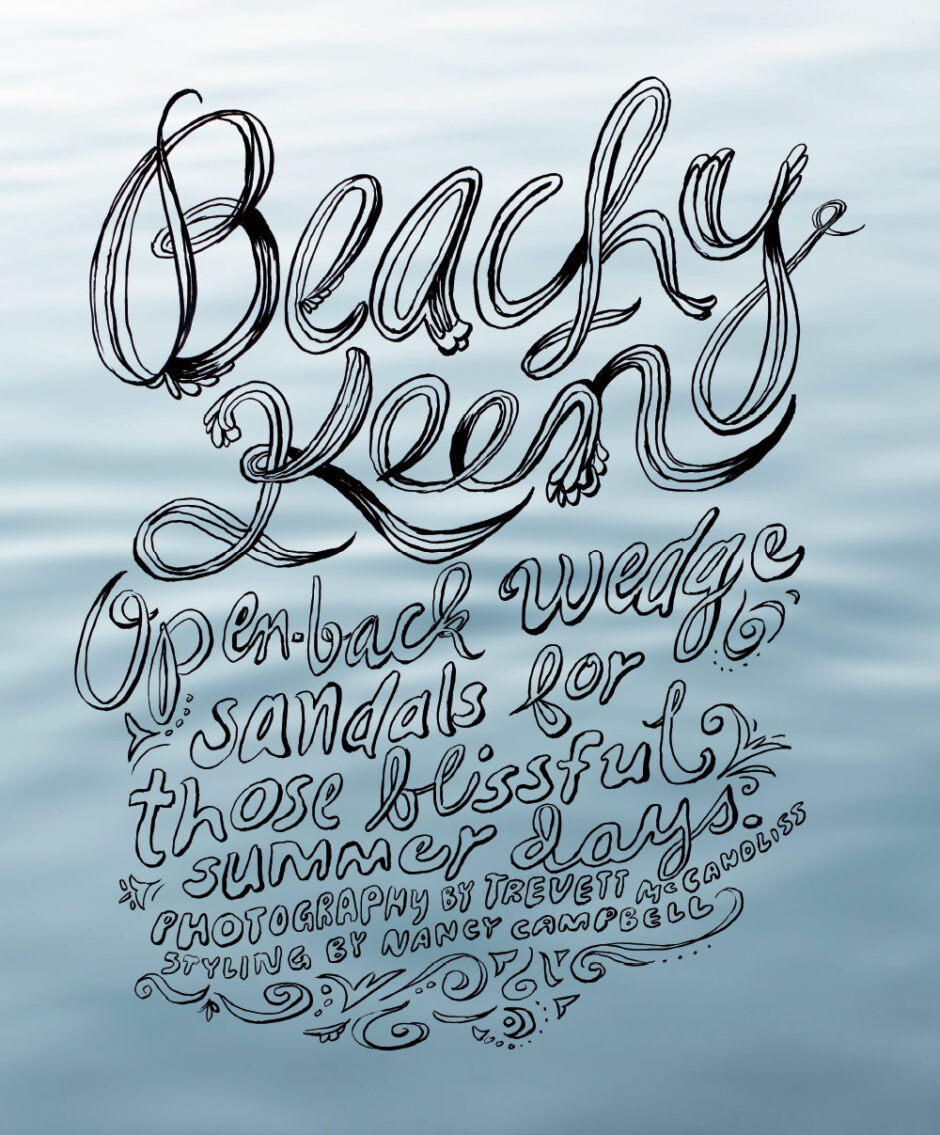 Beachy
Keen
Open-back wedge
sandals for
those blissful
summer days.
PHOTOGRAPHY BY TREVETT McCANDLISS
STYLING BY NANCY CAMPBELL